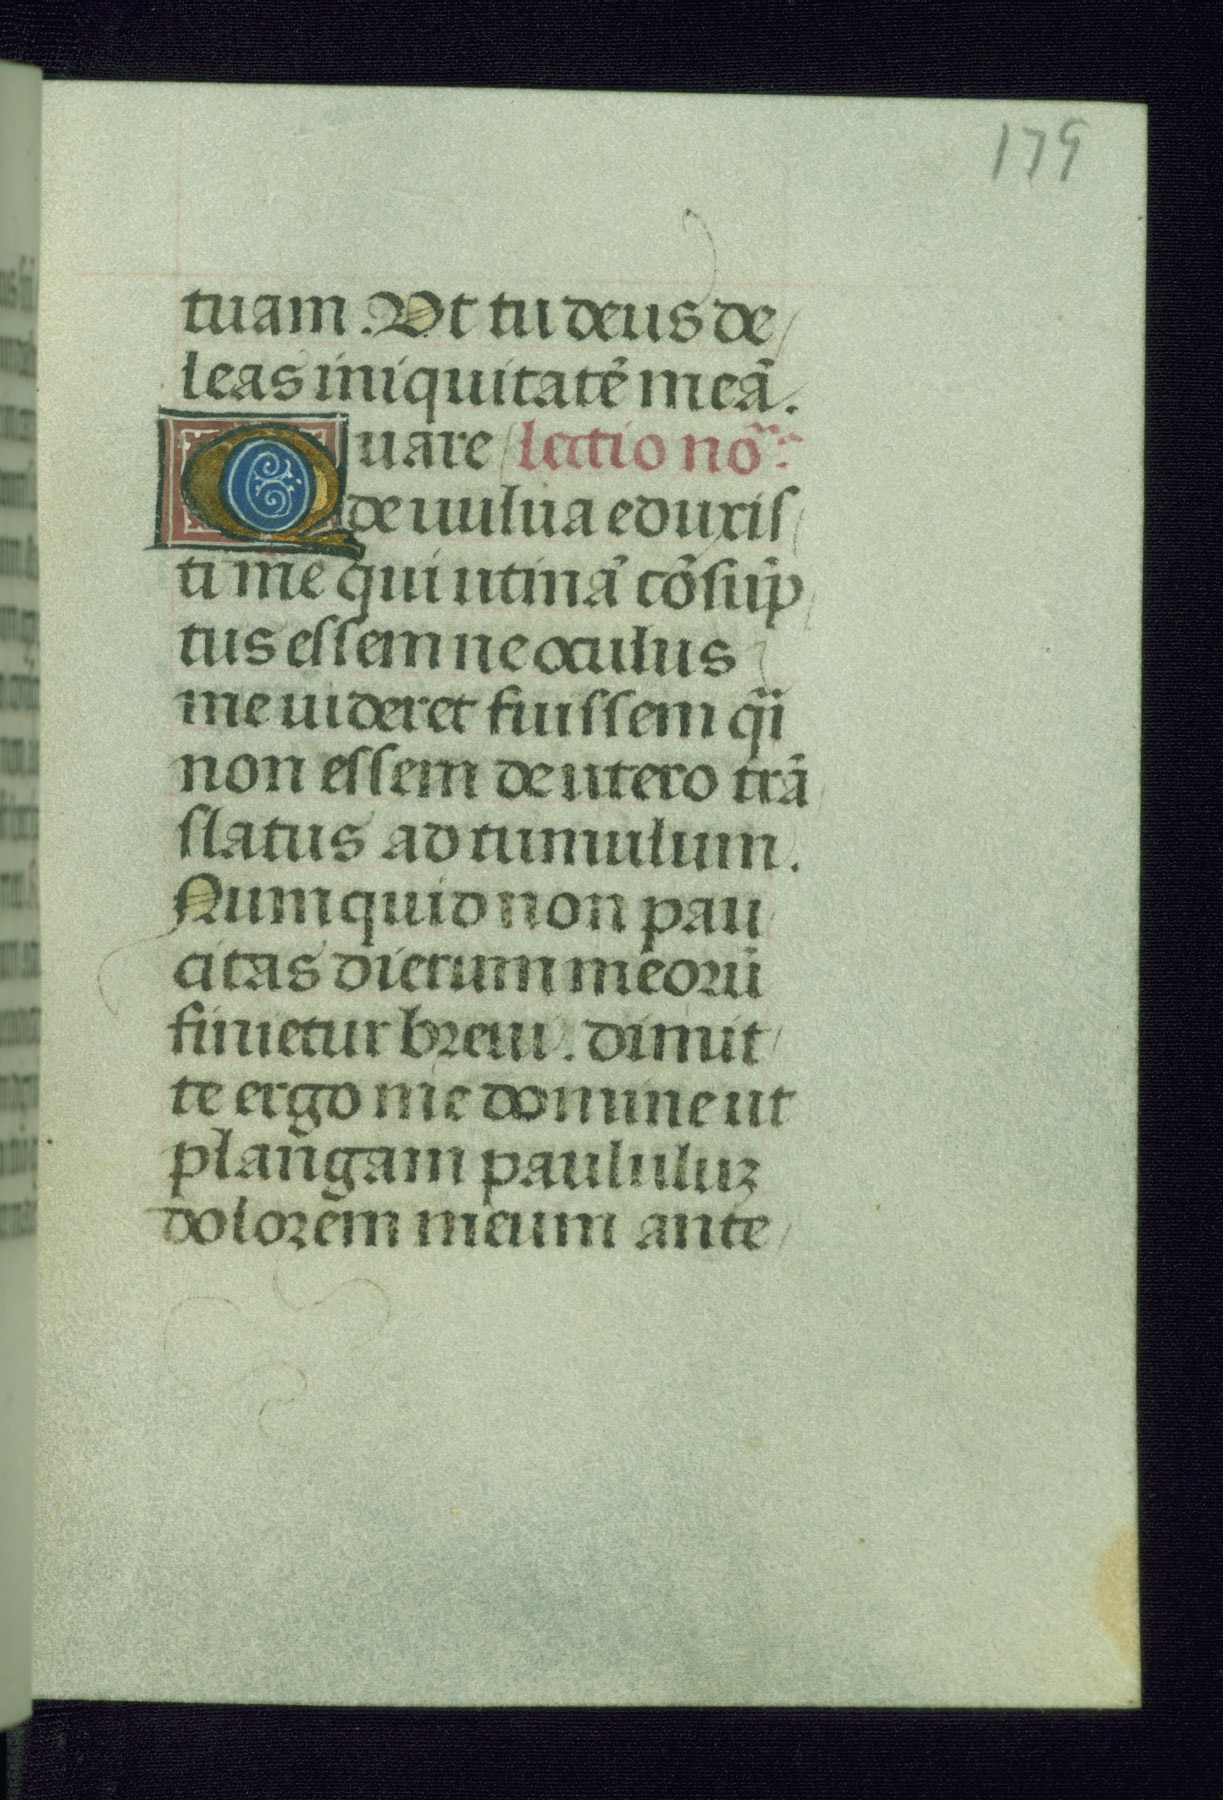 179
tuam. Vt tu deus de
leas iniquitatē meā.
Quare lectio nōa
de uulua eduxis
ti me qui utinā cōsūp
tus essem ne oculus
me uideret fuissem qͥi
non essem de utero trā
slatus ad tumulum.
Numquid non pau
citas dierum meorū
finietur breui. dimit
te ergo me domine ut
plangam paululuꝫ
dolorem meum ante